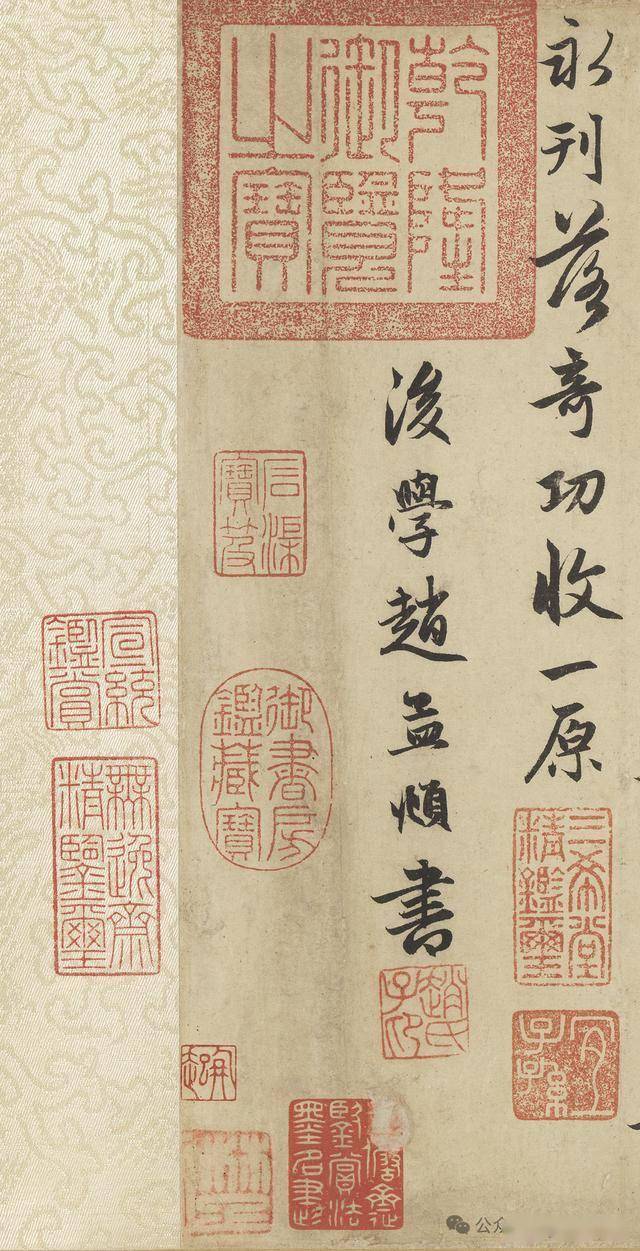 永刊落奇功收一原
三希堂精鑑璽
宜子孫
後學趙孟頫書
趙氏子昂
乾隆御覽之寶
石渠寶笈
御書房鑑藏寶
宣統鑑賞
無逸齋精鑒璽
公众